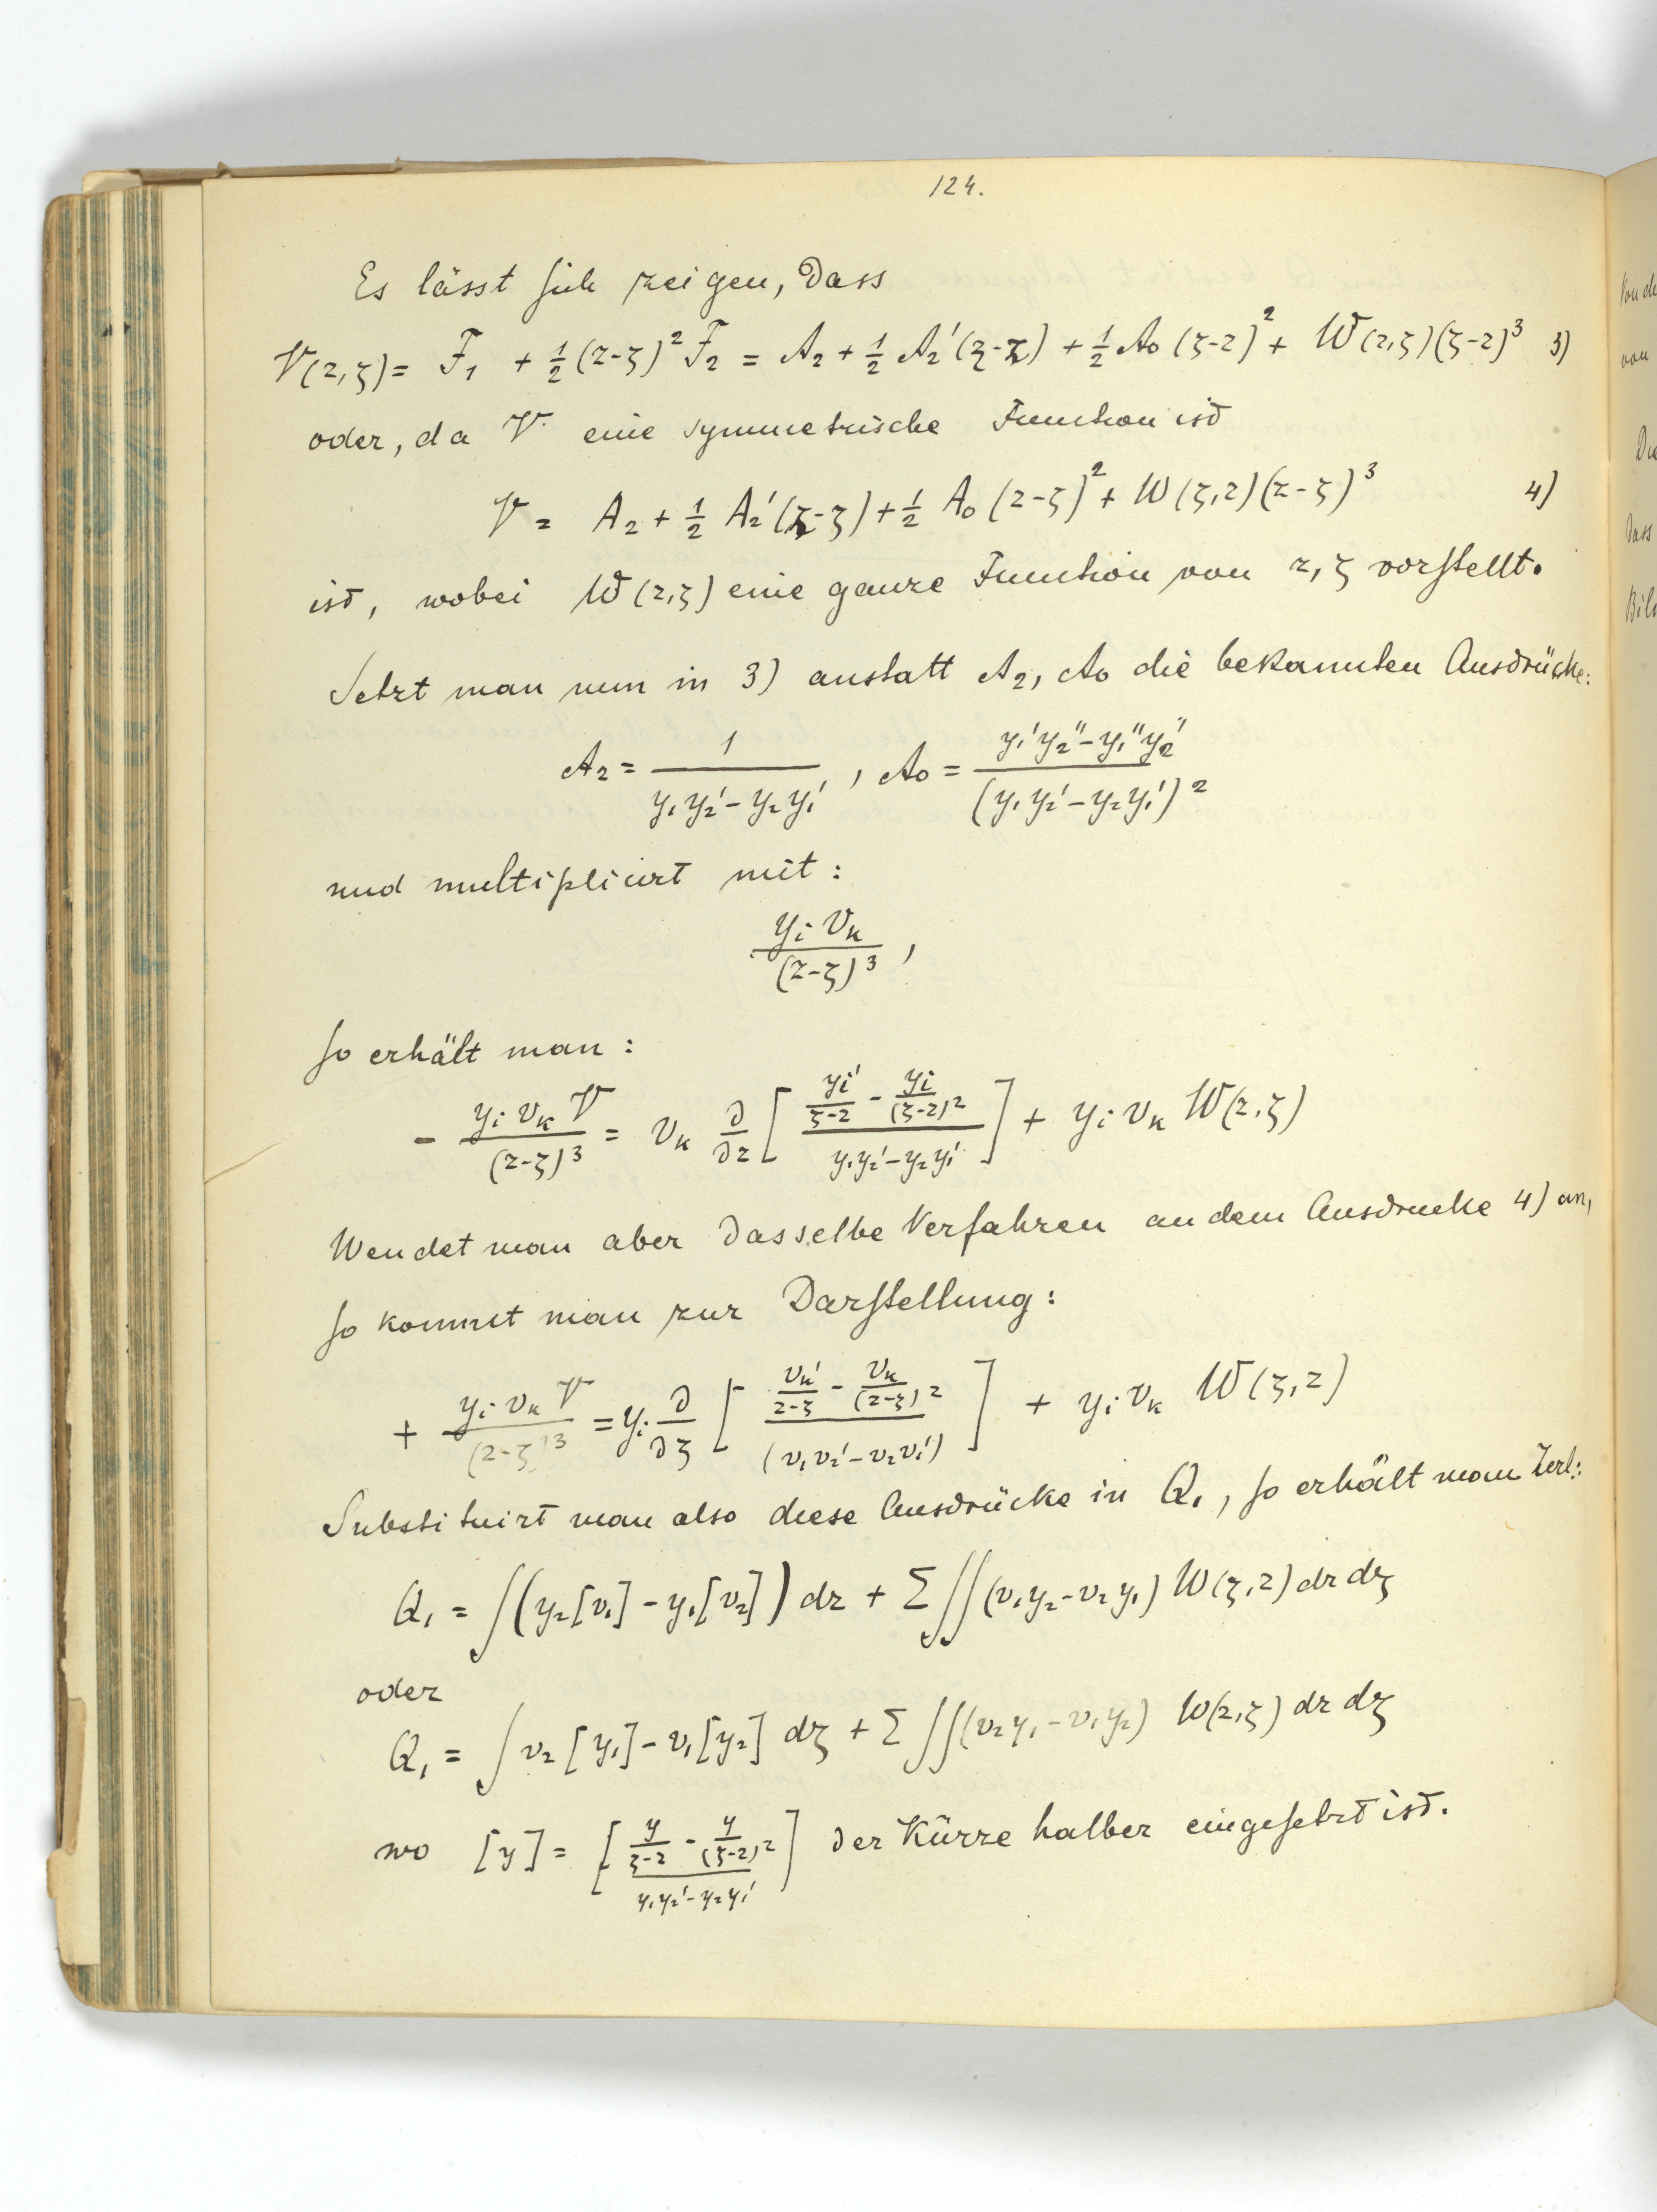 124.
Es lässt sich zeigen, dass
V(z,ζ) = F₁ + ½(z-ζ)² F₂ = A₂ + ½ A₂'(ζ-z) + ½ A₀ (ζ-z)² + W(z,ζ)(ζ-z)³ 3)
oder, da V eine symmetrische Function ist
V = A₂ + ½ A₂'(z-ζ) + ½ A₀ (z-ζ)² + W(ζ,z)(z-ζ)³ 4)
ist, wobei W(z,ζ) eine ganze Function von z, ζ vorstellt.
Setzt man nun in 3) anstatt A₂, A₀ die bekannten Ausdrücke:
A₂ = 1 / (y₁y₂' - y₂y₁') , A₀ = (y₁'y₂'' - y₁''y₂') / (y₁y₂' - y₂y₁')²
und multiplicirt mit:
yᵢ vₖ / (z-ζ)³ ,
so erhält man:
- yᵢ vₖ V / (z-ζ)³ = vₖ ∂/∂z [ (yᵢ'/(ζ-z) - yᵢ/(ζ-z)²) / (y₁y₂' - y₂y₁') ] + yᵢ vₖ W(z,ζ)
Wendet man aber dasselbe Verfahren an dem Ausdrucke 4) an,
so kommt man zur Darstellung:
+ yᵢ vₖ V / (z-ζ)³ = yᵢ ∂/∂ζ [ (vₖ'/(z-ζ) - vₖ/(z-ζ)²) / (v₁v₂' - v₂v₁') ] + yᵢ vₖ W(ζ,z)
Substituirt man also diese Ausdrücke in Q₁, so erhält man
Q₁ = ∫(y₂[v₁] - y₁[v₂]) dz + Σ∬(v₁y₂ - v₂y₁) W(ζ,z) dz dζ
oder
Q₁ = ∫ v₂[y₁] - v₁[y₂] dζ + Σ∬(v₂y₁ - v₁y₂) W(z,ζ) dz dζ
wo [y] = [ (y/(ζ-z) - y/(ζ-z)²) / (y₁y₂' - y₂y₁') ] der Kürze halber eingesetzt ist.
von
dass